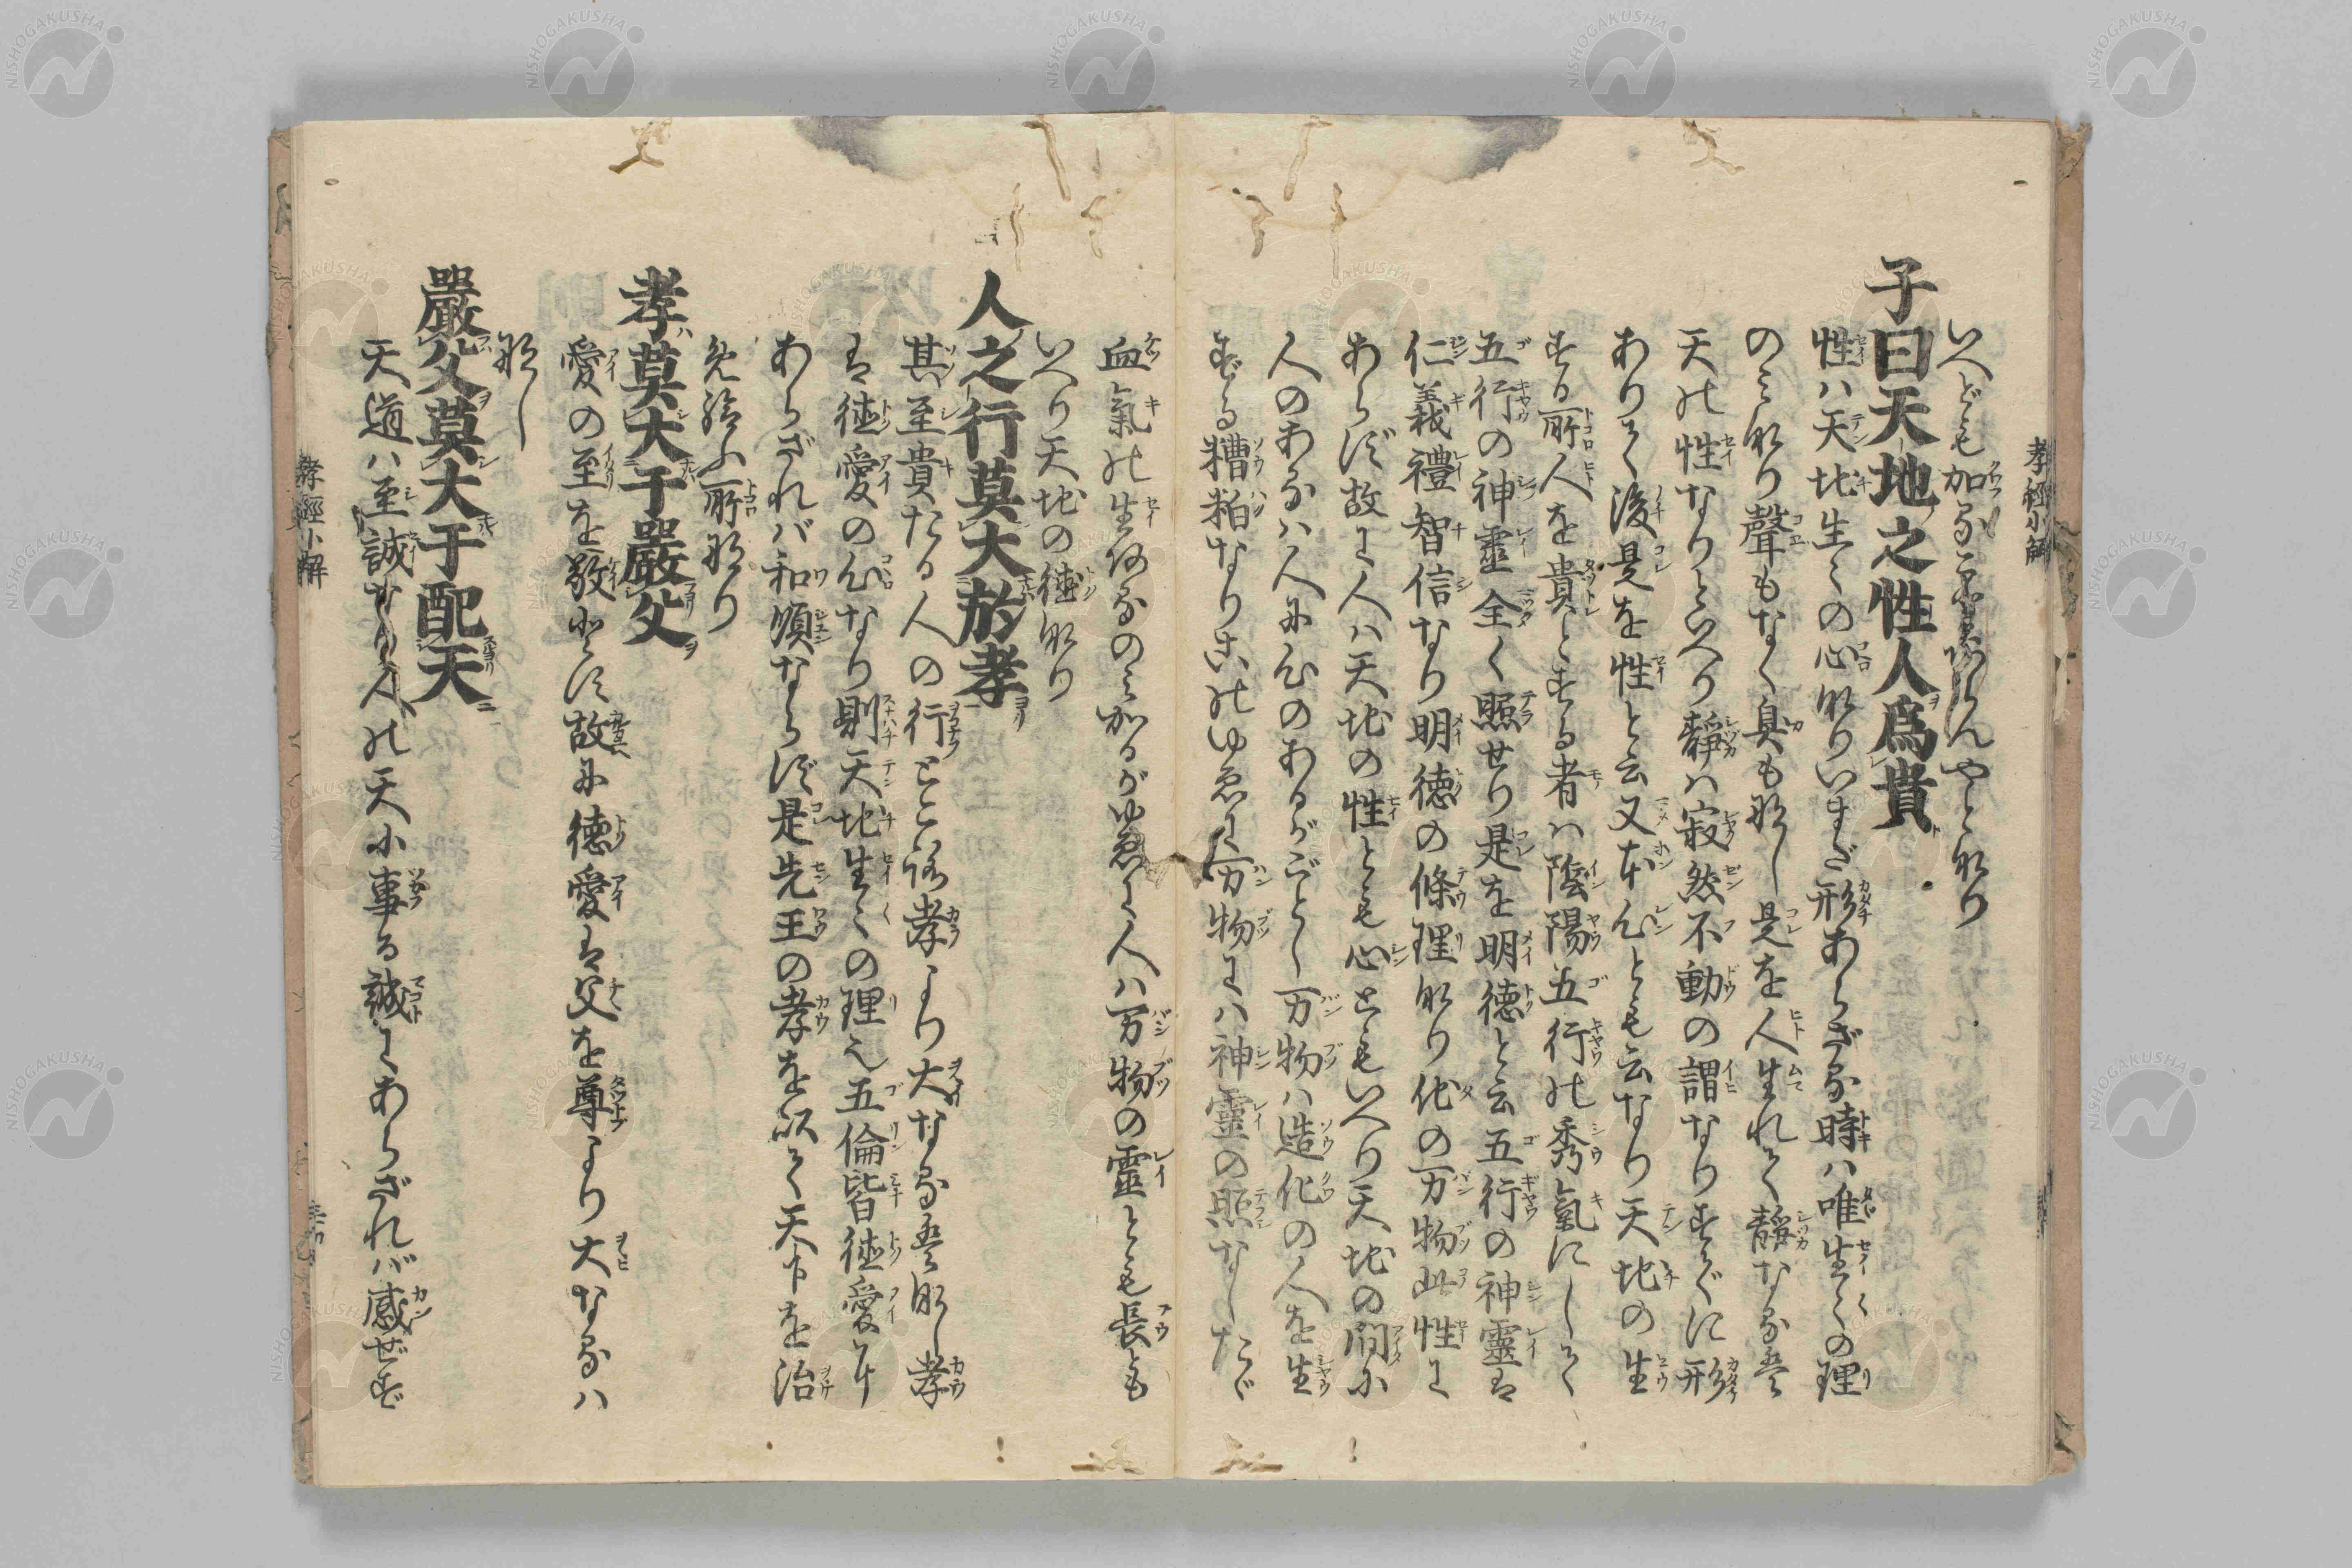 いへども加るに
子曰天地之性人爲貴
性ハ天地生々の心なりいまだ形あらざる時ハ唯生々の理
のミなり聲もなく臭も那し是を人生れて靜なる
天の性なりといへり靜ハ寂然不動の謂なりすでに形
ありて後是を性と云又本心とも云なり天地の生
する所人を貴とする者ハ陰陽五行の秀氣にして
五行の神靈全く照せり是を明徳と云五行の神靈は
仁義禮智信なり明徳の條理なり他の万物此性に
あらず故に人ハ天地の性とも心ともいへり天地の間に
人のあるハ人に心のあるがごとし万物ハ造化の人を生
ずる糟粕なり其ゆゑに万物にハ神靈の照なしたゞ
血氣の生活るのミ加るがゆゑに人ハ万物の靈とも長とも
いへり天地の徳なり
人之行莫大於孝
其至貴たる人の行とこ孝より大なる那し孝
は徳愛の心なり則天地生々の理也五倫皆徳愛に
あらざれバ和順ならず是先王の孝を以て天下を治
免給ふ所なり
孝莫大于嚴父
愛の至を敬とす故に徳愛は父を尊より大なるハ
那し
嚴父莫大于配天
天道ハ至誠なり人の天に事る誠にあらざれバ感ぜず
孝經小解
孝經小解